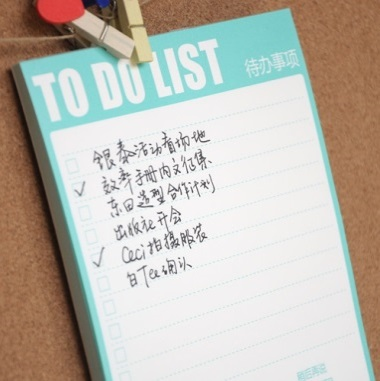 TO DO LIST
待办事项
银泰活动看场地
效率手册内文征集
东田造型合作计划
出版社开会
Ceci拍摄服装
白Tee确认